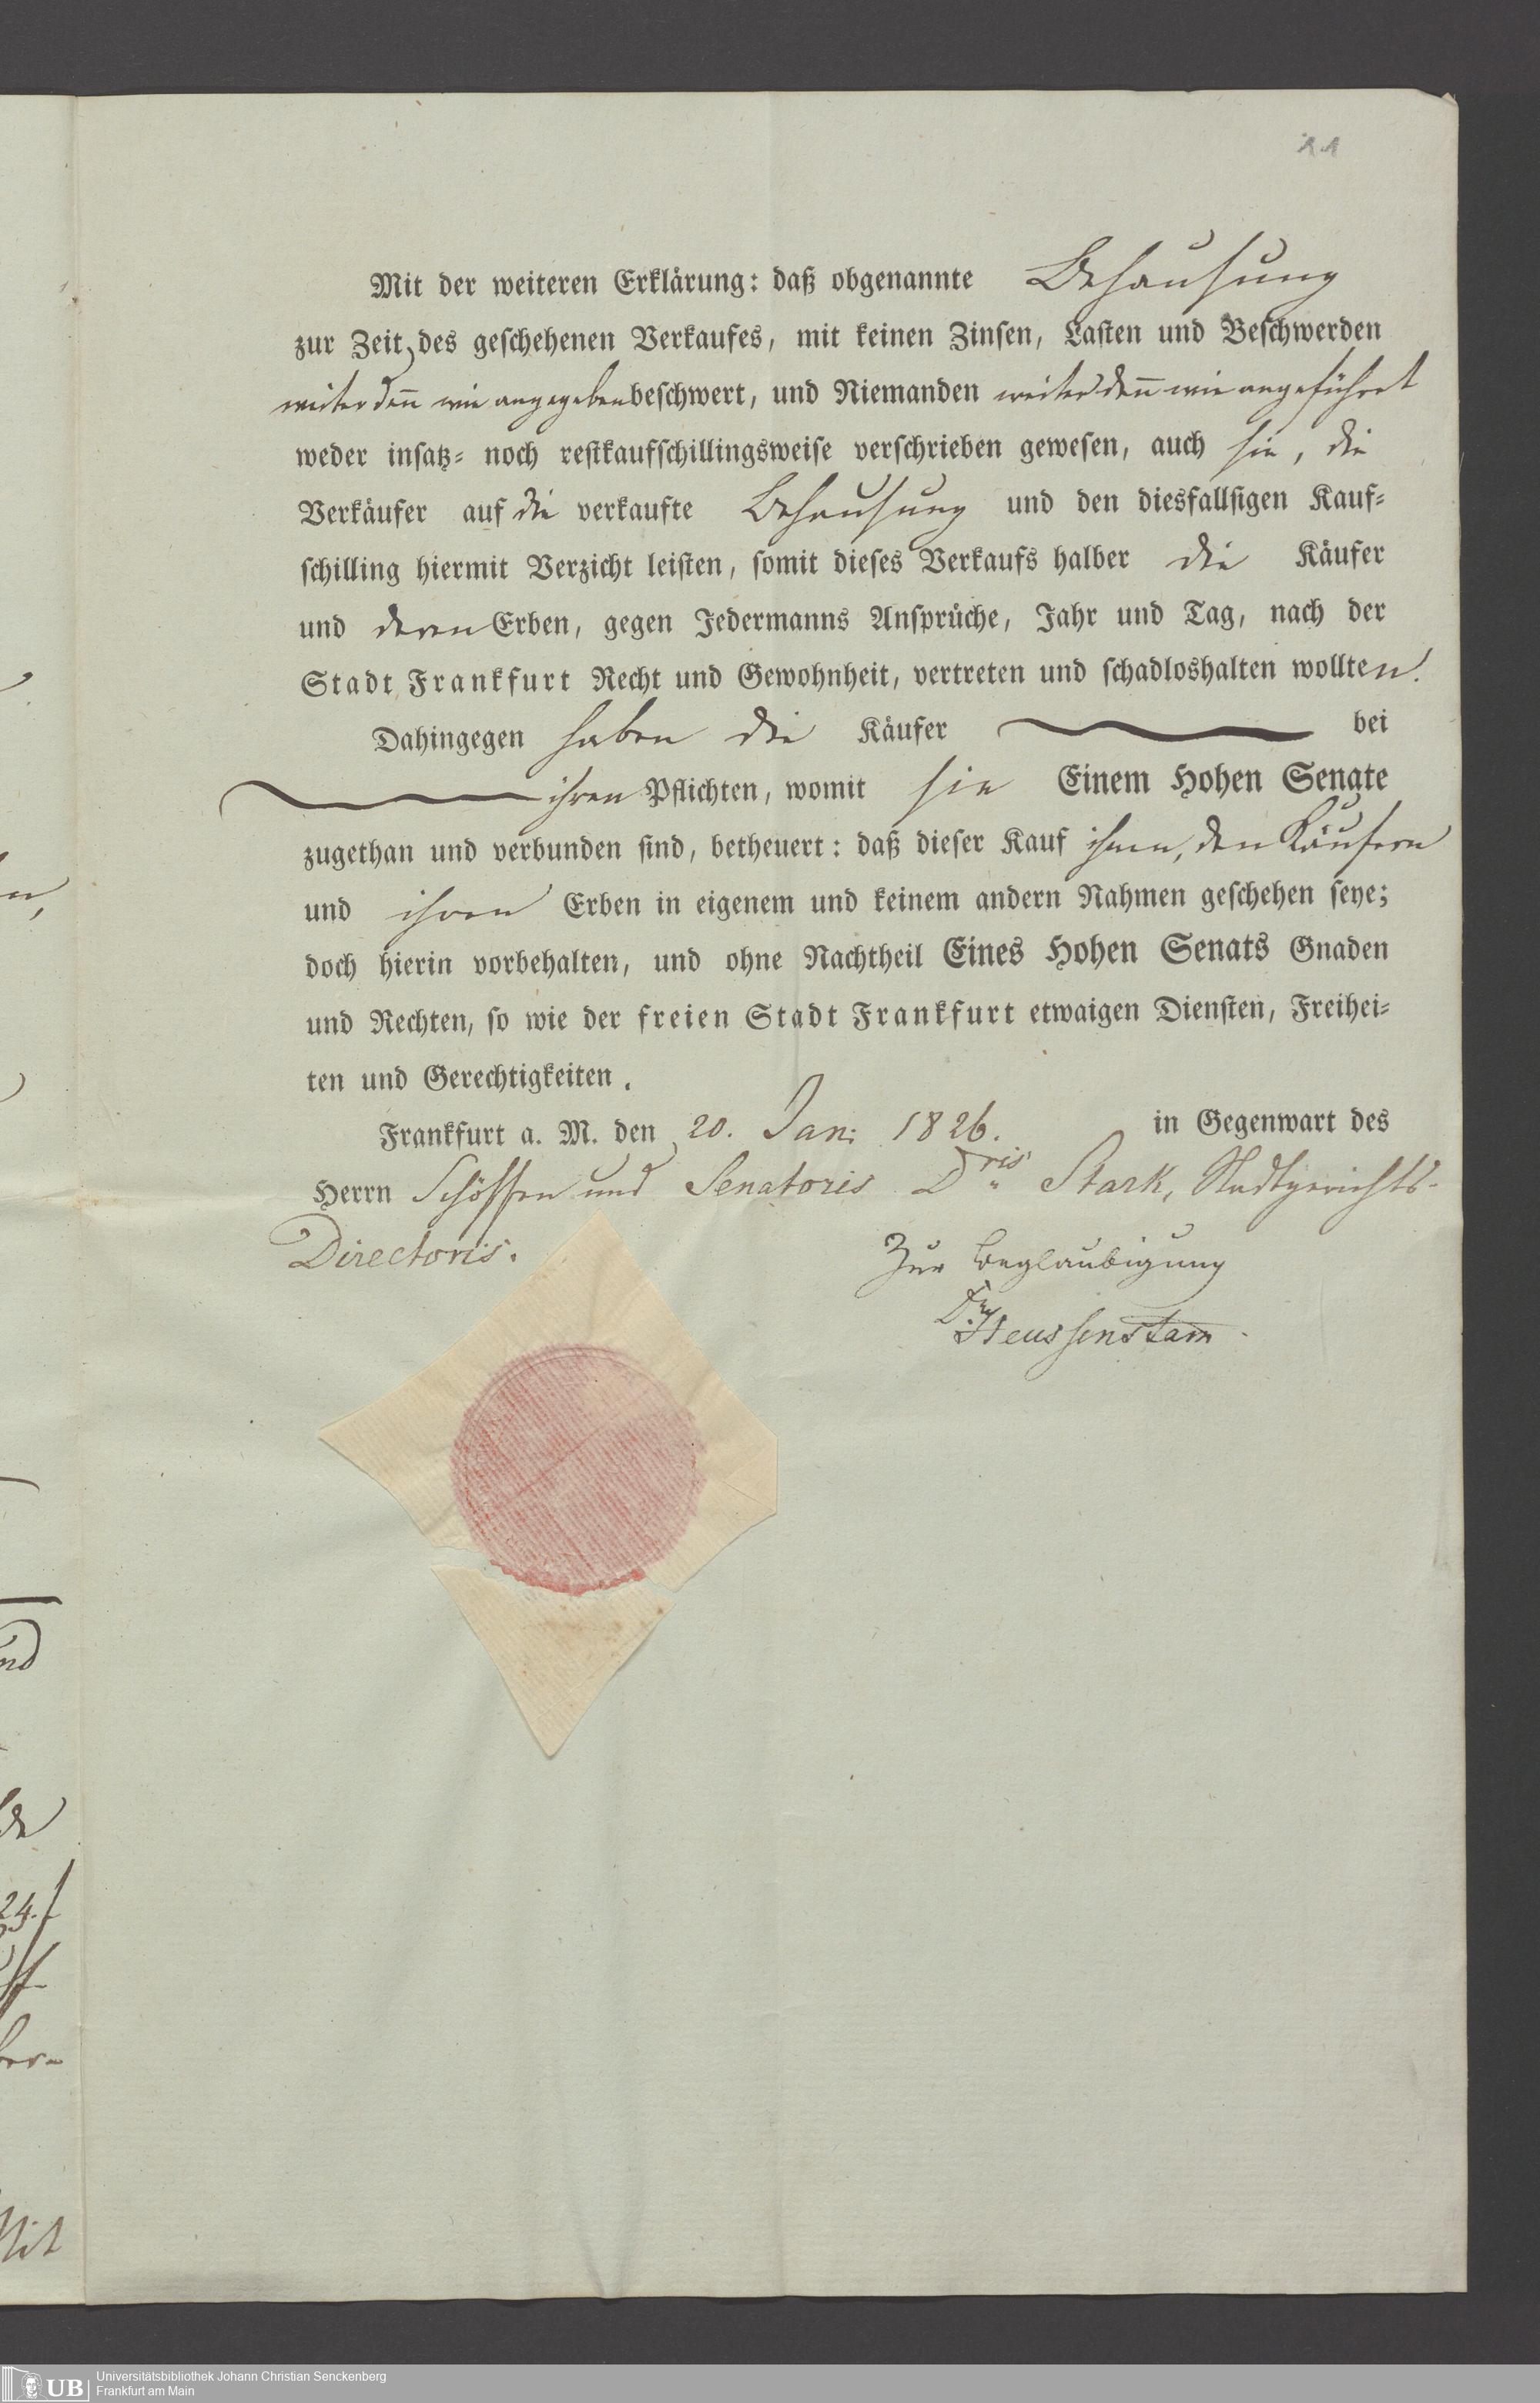 11
Mit der weiteren Erklärung: daß obgenannte Behausung
zur Zeit des geschehenen Verkaufes, mit keinen Zinsen, Lasten und Beschwerden
weiter den̄ wie angegeben beschwert, und Niemanden weiter den̄ wie angeführt
weder insatz- noch restkaufschillingsweise verschrieben gewesen, auch sie, die
Verkäufer auf die verkaufte Behausung und den diesfallsigen Kauf-
schilling hiermit Verzicht leisten, somit dieses Verkaufs halber die Käufer
und deren Erben, gegen Jedermanns Ansprüche, Jahr und Tag, nach der
Stadt Frankfurt Recht und Gewohnheit, vertreten und schadloshalten wollten.
Dahingegen haben die Käufer bei
ihren Pflichten, womit sie Einem Hohen Senate
zugethan und verbunden sind, betheuert: daß dieser Kauf ihnen, den Käufern
und ihren Erben in eigenem und keinem andern Nahmen geschehen seye;
doch hierin vorbehalten, und ohne Nachtheil Eines Hohen Senats Gnaden
und Rechten, so wie der freien Stadt Frankfurt etwaigen Diensten, Freihei-
ten und Gerechtigkeiten.
Frankfurt a. M. den 20. Jan: 1826. in Gegenwart des
Herrn Schöffen und Senatoris Dris Stark, Stadtgerichts-
Directoris.
Zur Beglaubigung
Dr Heussenstam̄
UB Universitätsbibliothek Johann Christian Senckenberg
Frankfurt am Main